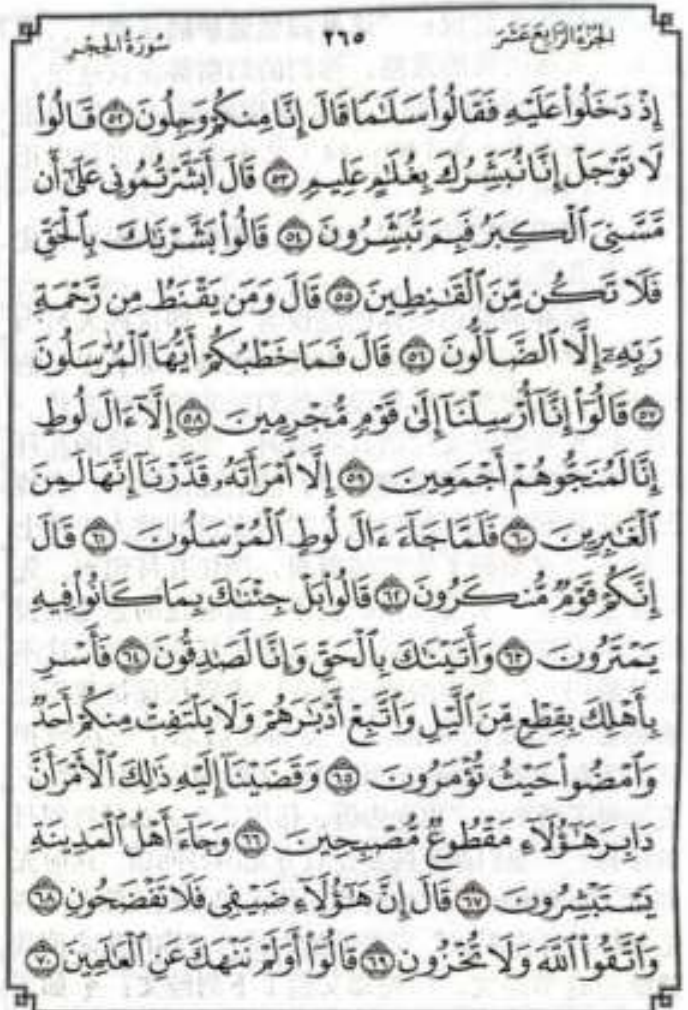 الجزء الرابع عشر ٢٦٥ سورة الحجر
إِذْ دَخَلُوا۟ عَلَيْهِ فَقَالُوا۟ سَلَـٰمًا قَالَ إِنَّا مِنكُمْ وَجِلُونَ ٥٢ قَالُوا۟
لَا تَوْجَلْ إِنَّا نُبَشِّرُكَ بِغُلَـٰمٍ عَلِيمٍ ٥٣ قَالَ أَبَشَّرْتُمُونِى عَلَىٰٓ أَن
مَّسَّنِىَ ٱلْكِبَرُ فَبِمَ تُبَشِّرُونَ ٥٤ قَالُوا۟ بَشَّرْنَـٰكَ بِٱلْحَقِّ
فَلَا تَكُن مِّنَ ٱلْقَـٰنِطِينَ ٥٥ قَالَ وَمَن يَقْنَطُ مِن رَّحْمَةِ
رَبِّهِۦٓ إِلَّا ٱلضَّآلُّونَ ٥٦ قَالَ فَمَا خَطْبُكُمْ أَيُّهَا ٱلْمُرْسَلُونَ
٥٧ قَالُوٓا۟ إِنَّآ أُرْسِلْنَآ إِلَىٰ قَوْمٍ مُّجْرِمِينَ ٥٨ إِلَّآ ءَالَ لُوطٍ
إِنَّا لَمُنَجُّوهُمْ أَجْمَعِينَ ٥٩ إِلَّا ٱمْرَأَتَهُۥ قَدَّرْنَآ إِنَّهَا لَمِنَ
ٱلْغَـٰبِرِينَ ٦٠ فَلَمَّا جَآءَ ءَالَ لُوطٍ ٱلْمُرْسَلُونَ ٦١ قَالَ
إِنَّكُمْ قَوْمٌ مُّنكَرُونَ ٦٢ قَالُوا۟ بَلْ جِئْنَـٰكَ بِمَا كَانُوا۟ فِيهِ
يَمْتَرُونَ ٦٣ وَأَتَيْنَـٰكَ بِٱلْحَقِّ وَإِنَّا لَصَـٰدِقُونَ ٦٤ فَأَسْرِ
بِأَهْلِكَ بِقِطْعٍ مِّنَ ٱلَّيْلِ وَٱتَّبِعْ أَدْبَـٰرَهُمْ وَلَا يَلْتَفِتْ مِنكُمْ أَحَدٌ
وَٱمْضُوا۟ حَيْثُ تُؤْمَرُونَ ٦٥ وَقَضَيْنَآ إِلَيْهِ ذَٰلِكَ ٱلْأَمْرَ أَنَّ
دَابِرَ هَـٰٓؤُلَآءِ مَقْطُوعٌ مُّصْبِحِينَ ٦٦ وَجَآءَ أَهْلُ ٱلْمَدِينَةِ
يَسْتَبْشِرُونَ ٦٧ قَالَ إِنَّ هَـٰٓؤُلَآءِ ضَيْفِى فَلَا تَفْضَحُونِ ٦٨
وَٱتَّقُوا۟ ٱللَّهَ وَلَا تُخْزُونِ ٦٩ قَالُوٓا۟ أَوَلَمْ نَنْهَكَ عَنِ ٱلْعَـٰلَمِينَ ٧٠